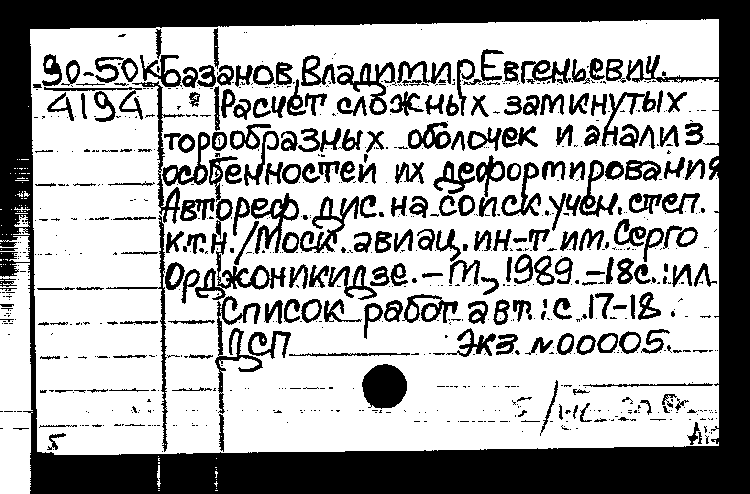 90-50К Базанов, Владимир Евгеньевич.
4194 Расчет сложных замкнутых
торообразных оболочек и анализ
особенностей их деформирования
Автореф. дис. на соиск. учен. степ.
к.т.н. / Моск. авиац. ин-т им. Серго
Орджоникидзе. – М., 1989. – 18с. : ил
Список работ авт.: с. 17-18.
ДСП Экз. №00005.
5